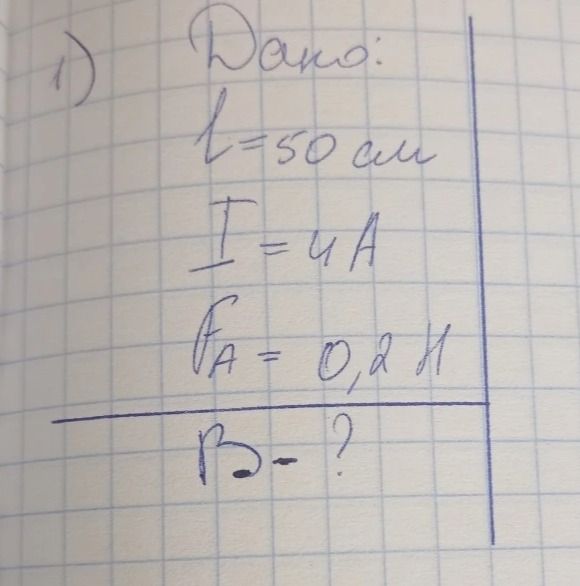 1) Дано:
l = 50 см
I = 4 А
FА = 0,2 Н
B - ?